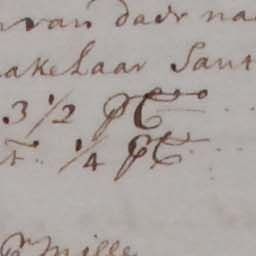 van daer na
akelaar Sant
3 1/2 p Cto
t. 1/4 p Cto
p mille